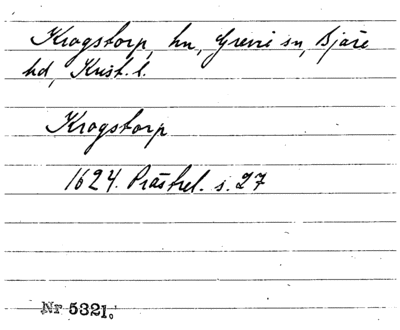 Krogstorp, hn, Grevie sn, Bjäre
hd, Krist. l.
Krogstorp
1624. Prästrel. s. 27
Nr 5321.